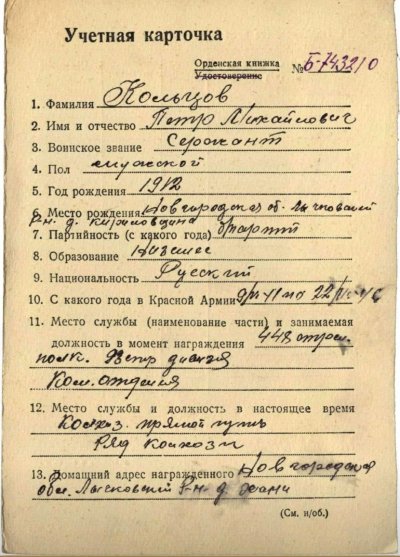 Учетная карточка
Орденская книжка
Удостоверение № Б-743210
1. Фамилия Кольцов
2. Имя и отчество Петр Михайлович
3. Воинское звание Сержант
4. Пол мужской
5. Год рождения 1912
6. Место рождения Новгородская об. Лычковский
р-н. д.
7. Партийность (с какого года)
8. Образование Низшее
9. Национальность Русский
10. С какого года в Красной Армии
11. Место службы (наименование части) и занимаемая
должность в момент награждения 448 стрел.
полк.
Ком. отделения
12. Место службы и должность в настоящее время
Колхоз. прямой путь
Ряд колхозн
13. Домашний адрес награжденного Новгородская
обл. Лычковский р-н. д.
(См. н/об.)